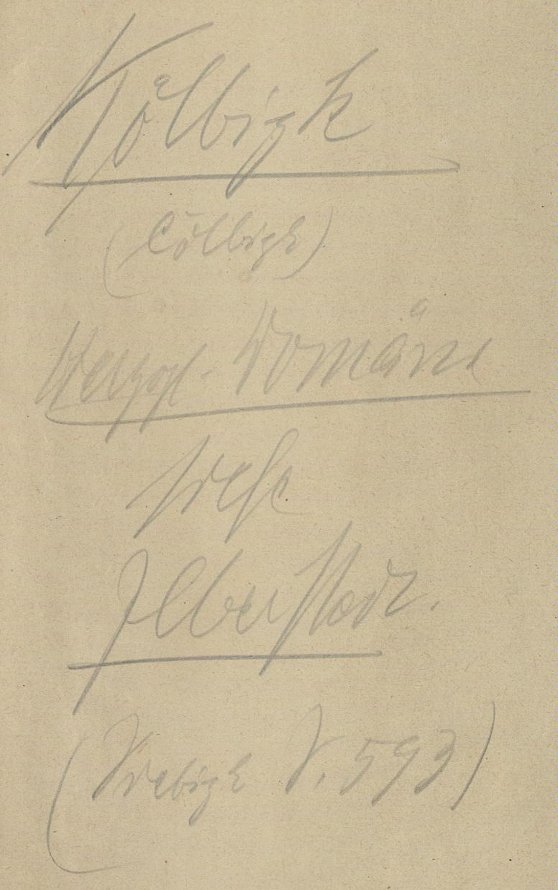 Kölbigk
(Cölbigk)
Herzogl. Domäne
siehe
Ilberstedt.
(Siebigk S. 593)